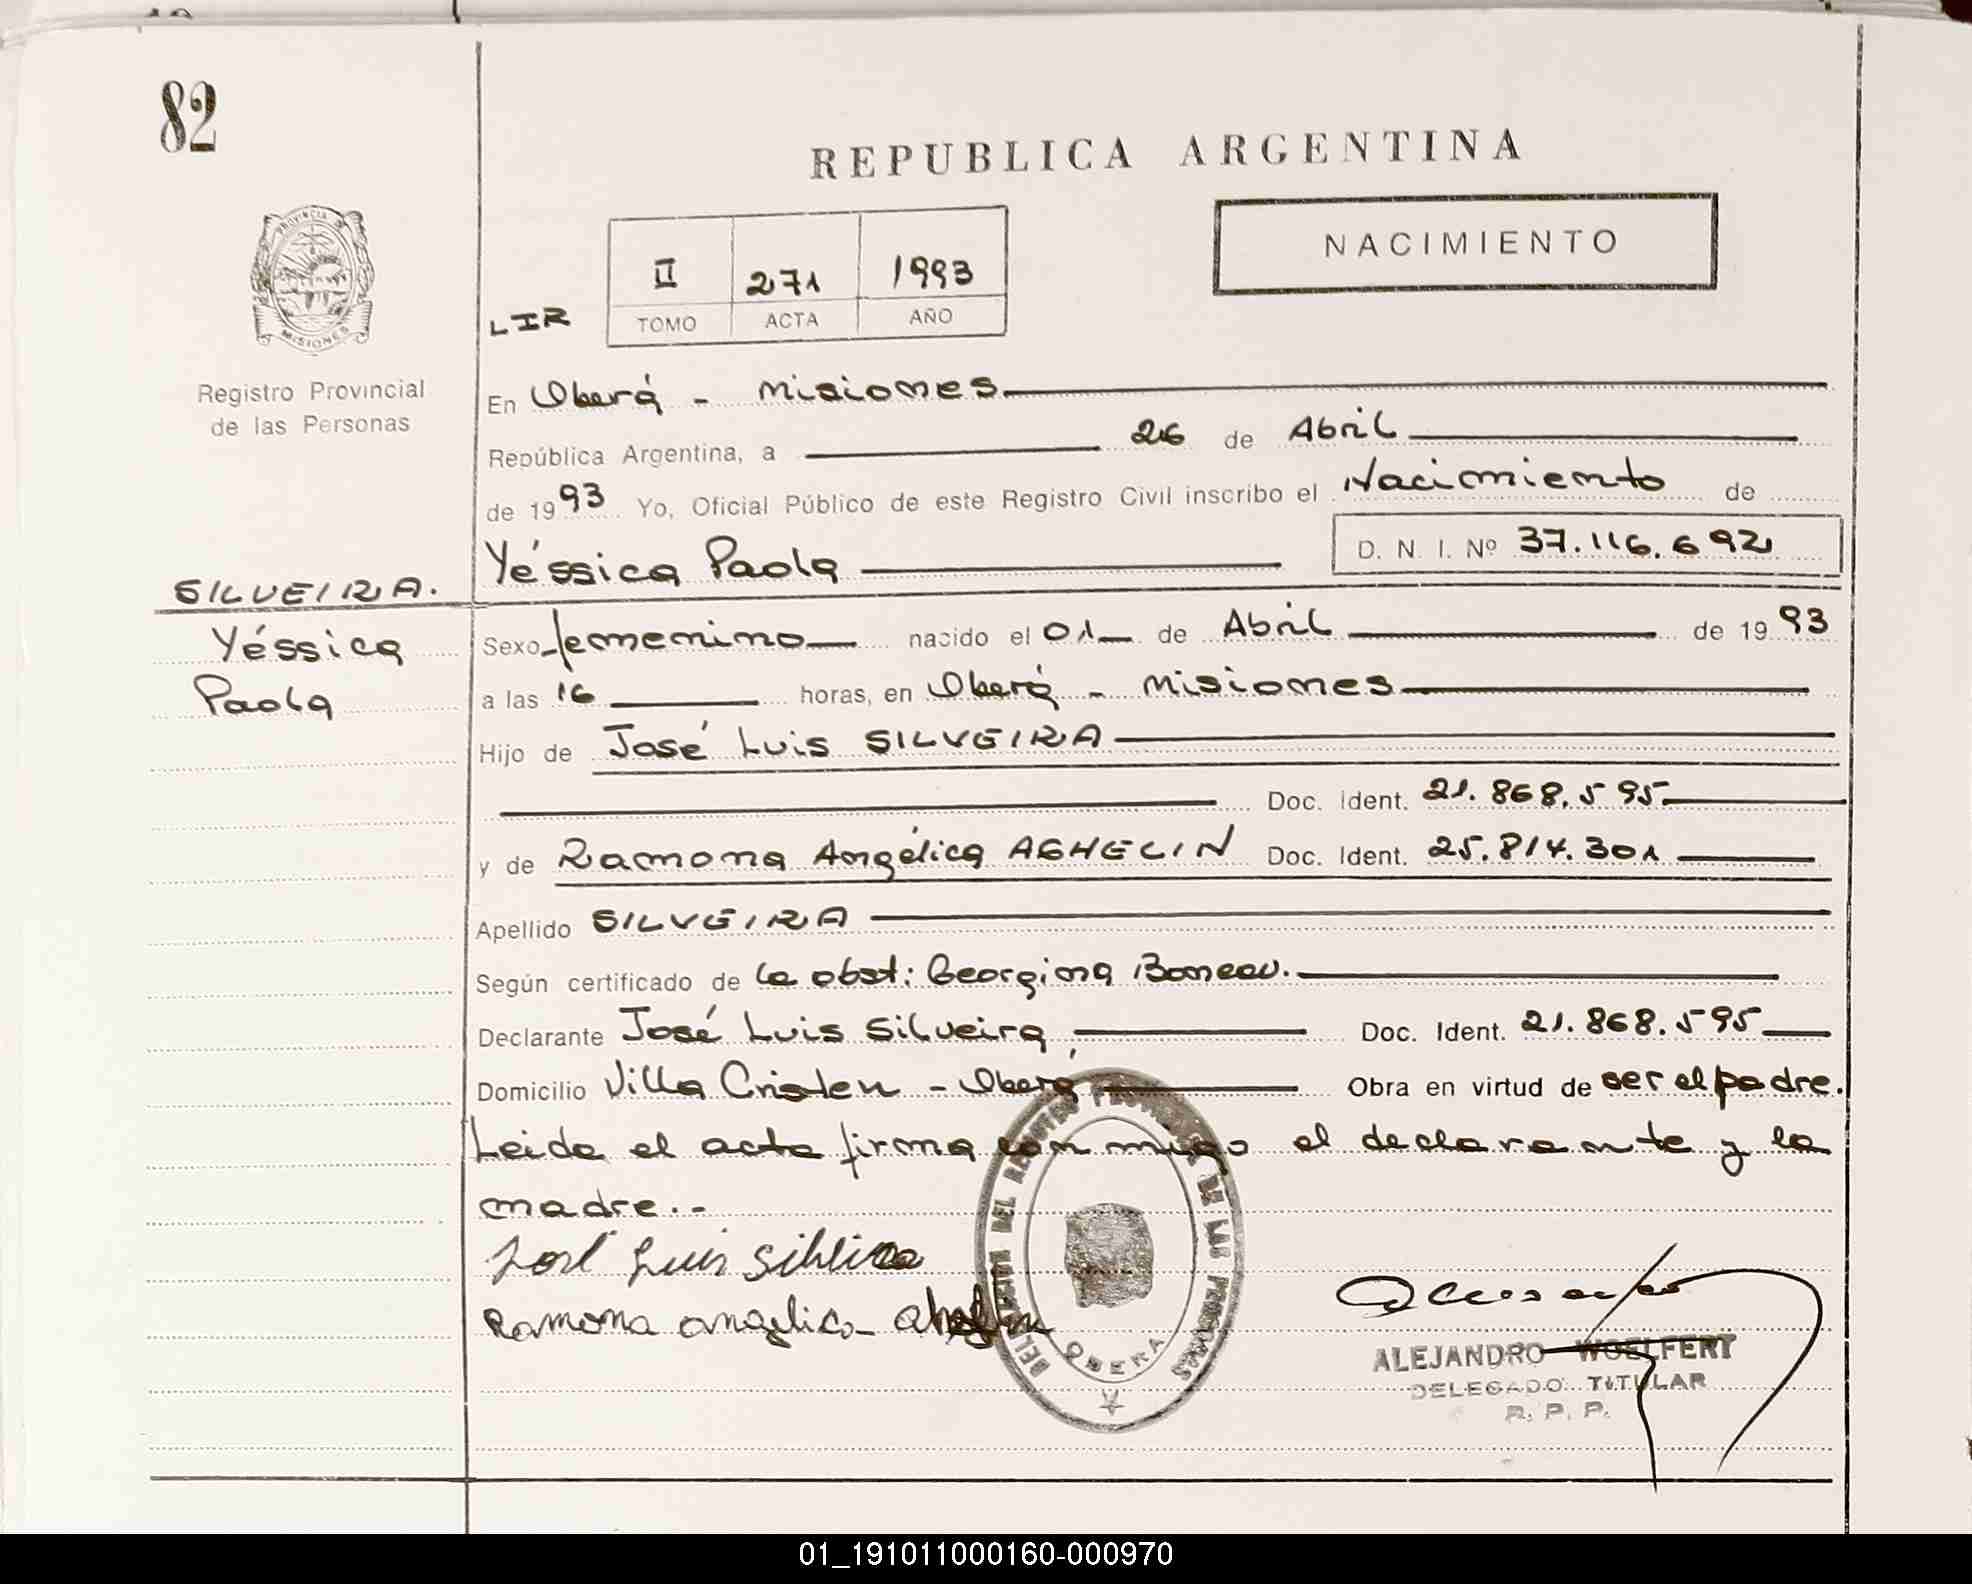 82
REPUBLICA ARGENTINA
PROVINCIA DE
MISIONES
NACIMIENTO
II 271 1993
LIR
TOMO ACTA AÑO
Registro Provincial
de las Personas
En Oberá - Misiones
República Argentina, a 26 de Abril
de 1993 Yo, Oficial Público de este Registro Civil inscribo el Nacimiento de
Yéssica Paola
D. N. I. Nº 37.116.692
SILVEIRA.
Yéssica
Paola
Sexo femenino nacido el 01 de Abril de 1993
a las 16 horas, en Oberá - Misiones
Hijo de José Luis SILVEIRA
Doc. Ident. 21.868.595
y de Ramona Angélica AGHELIN Doc. Ident. 25.814.301
Apellido SILVEIRA
Según certificado de la obst: Georgina Boneau.
Declarante José Luis Silveira, Doc. Ident. 21.868.595
Domicilio Villa Cristen - Oberá Obra en virtud de ser el padre.
Leida el acta firma conmigo el declarante y la
madre.-
José Luis Silveira
Ramona angelica
OBERA
ALEJANDRO WOELFERT
DELEGADO TITULAR
R. P. P.
01_191011000160-000970